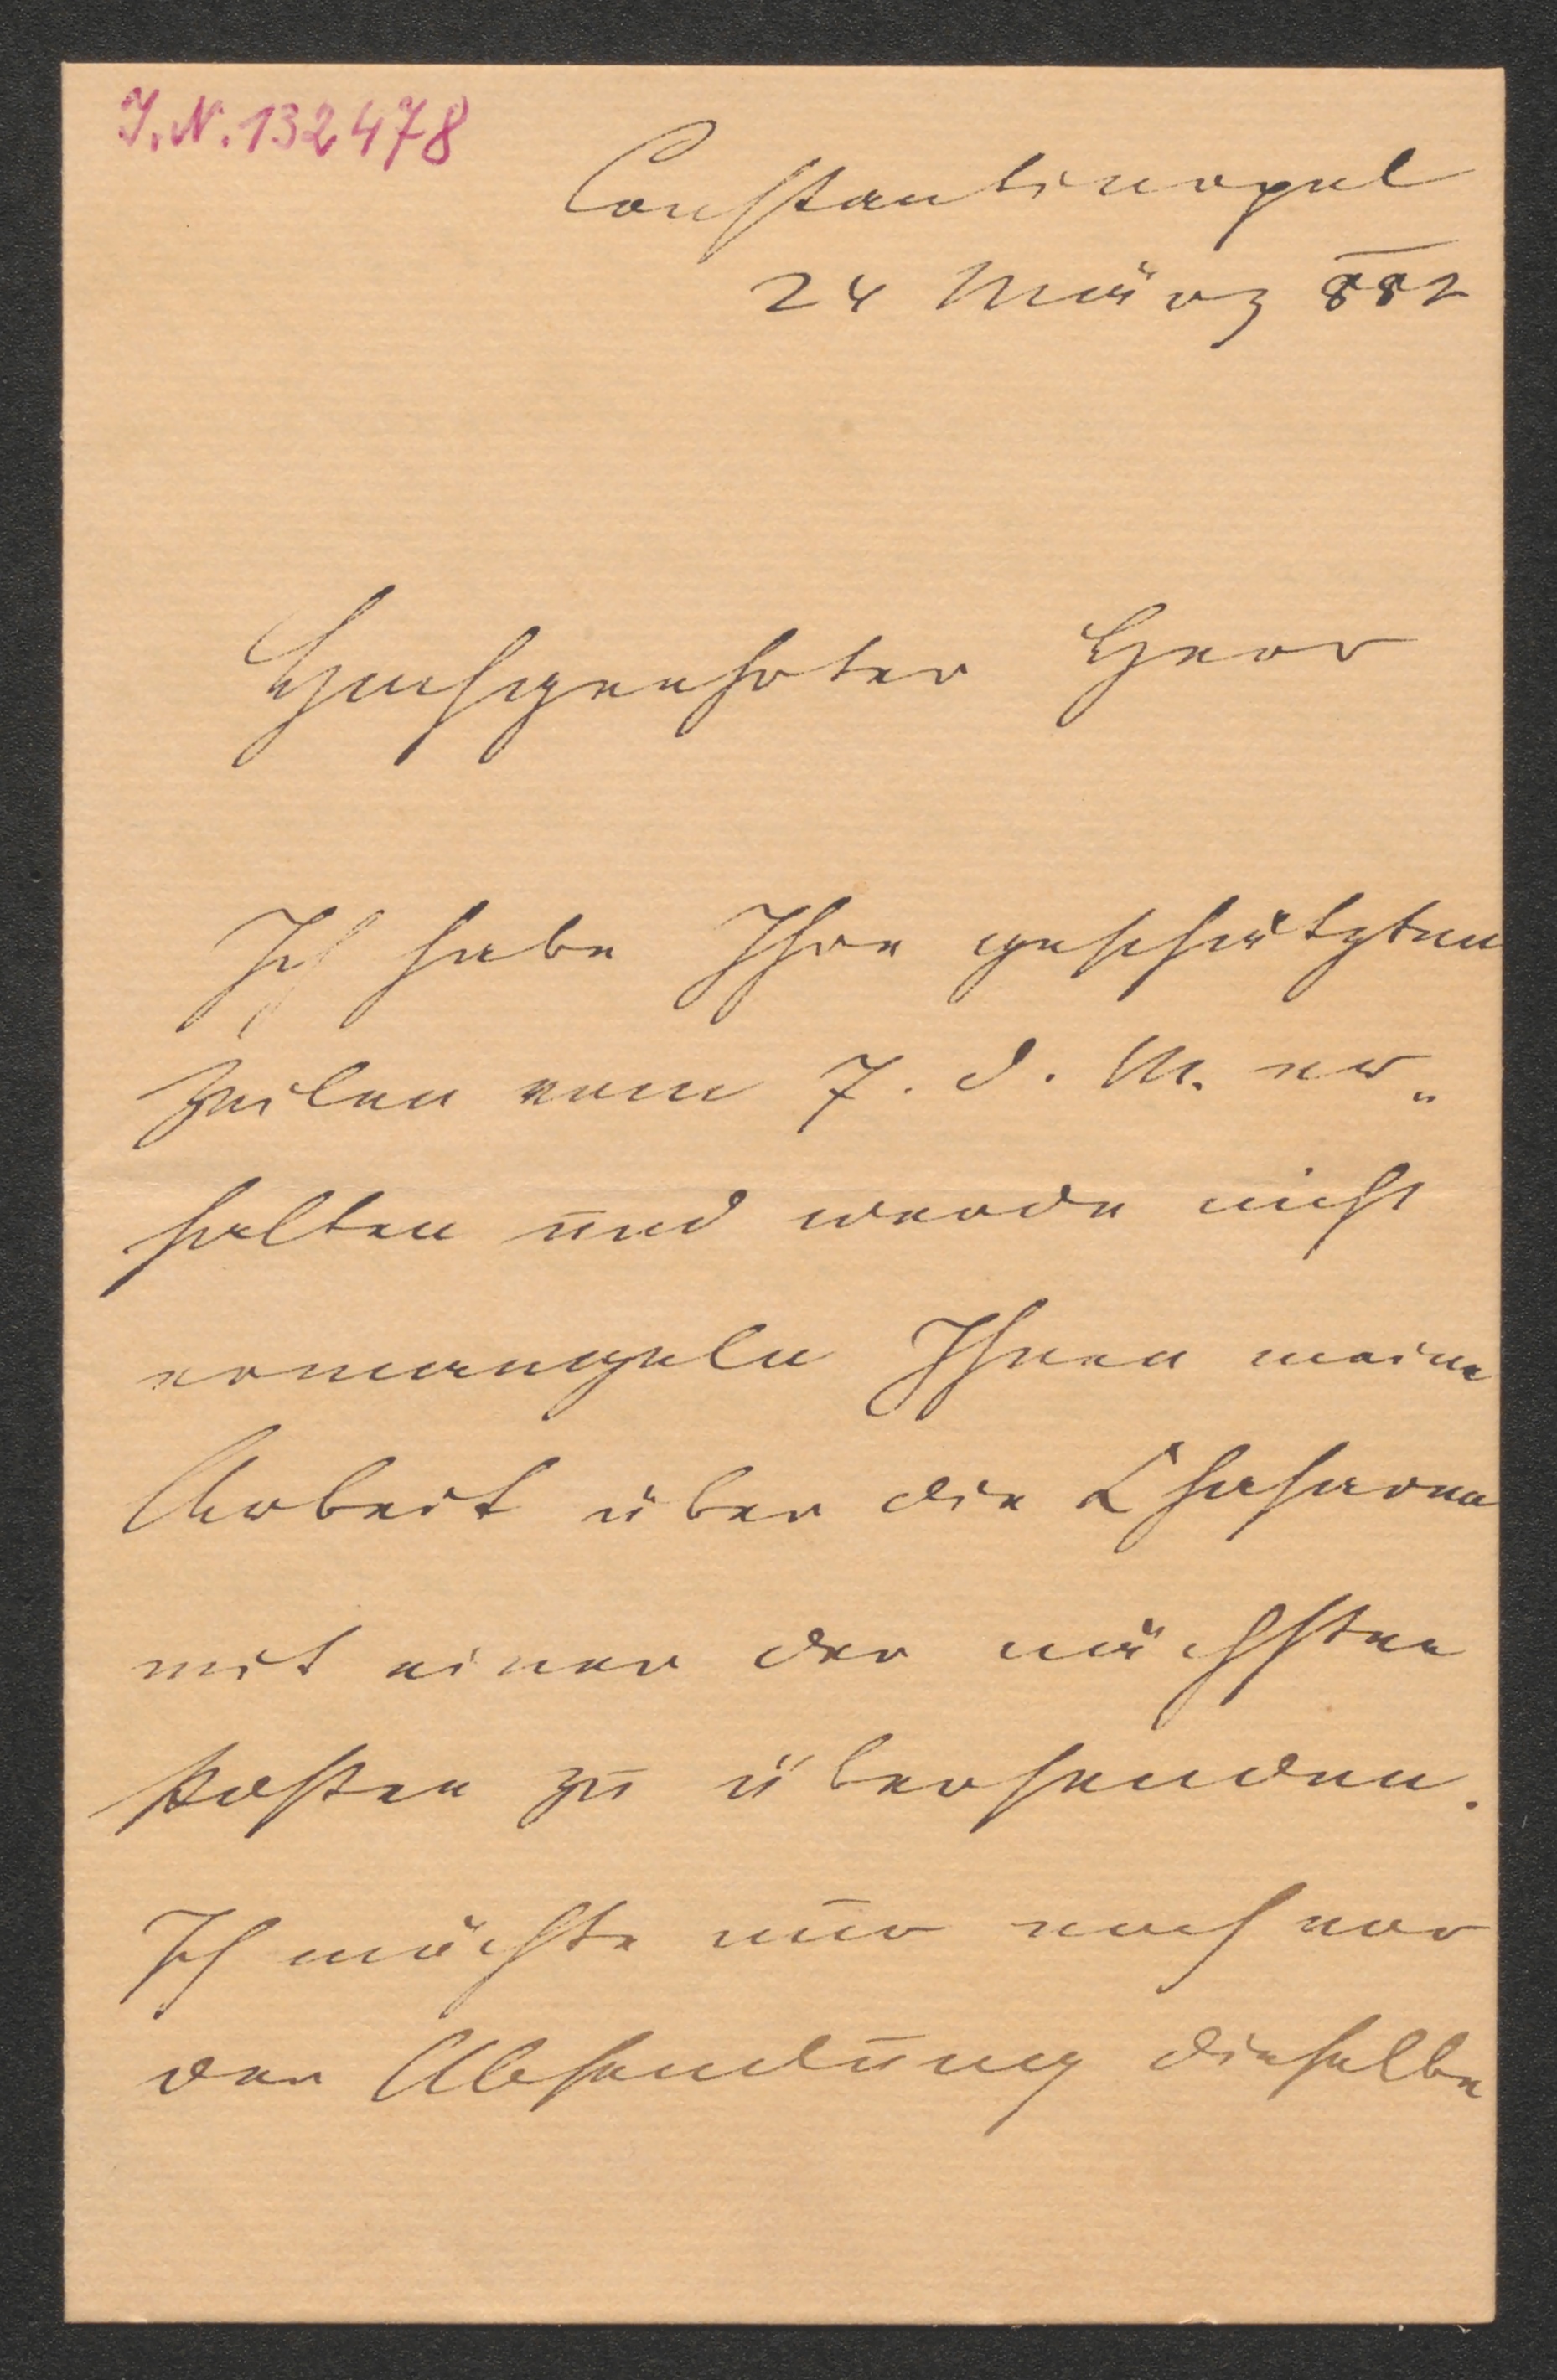 I.N. 132478
Constantinopel
24 März 882
Hochgeehrter Herr
Ich habe Ihre geschätzten
Zeilen vom 7. d. M. er„
halten und werde nicht
ermangeln Ihnen meine
Arbeit über die
mit einer der nächsten
Posten zu übersenden.
Ich möchte nur noch vor
der Absendung dieselbe